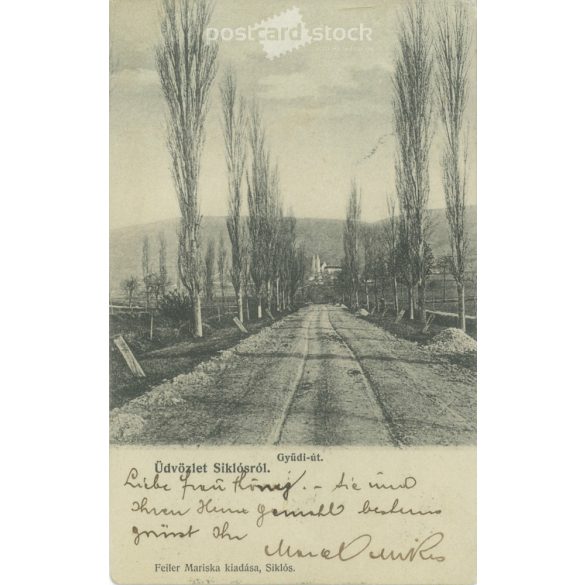 postcard stock
Gyűdi-út.
Üdvözlet Siklósról.
Liebe Frau König. – Sie und
Ihren Herrn Gemahl bestens
grüsst Ihr
Feiler Mariska kiadása, Siklós.